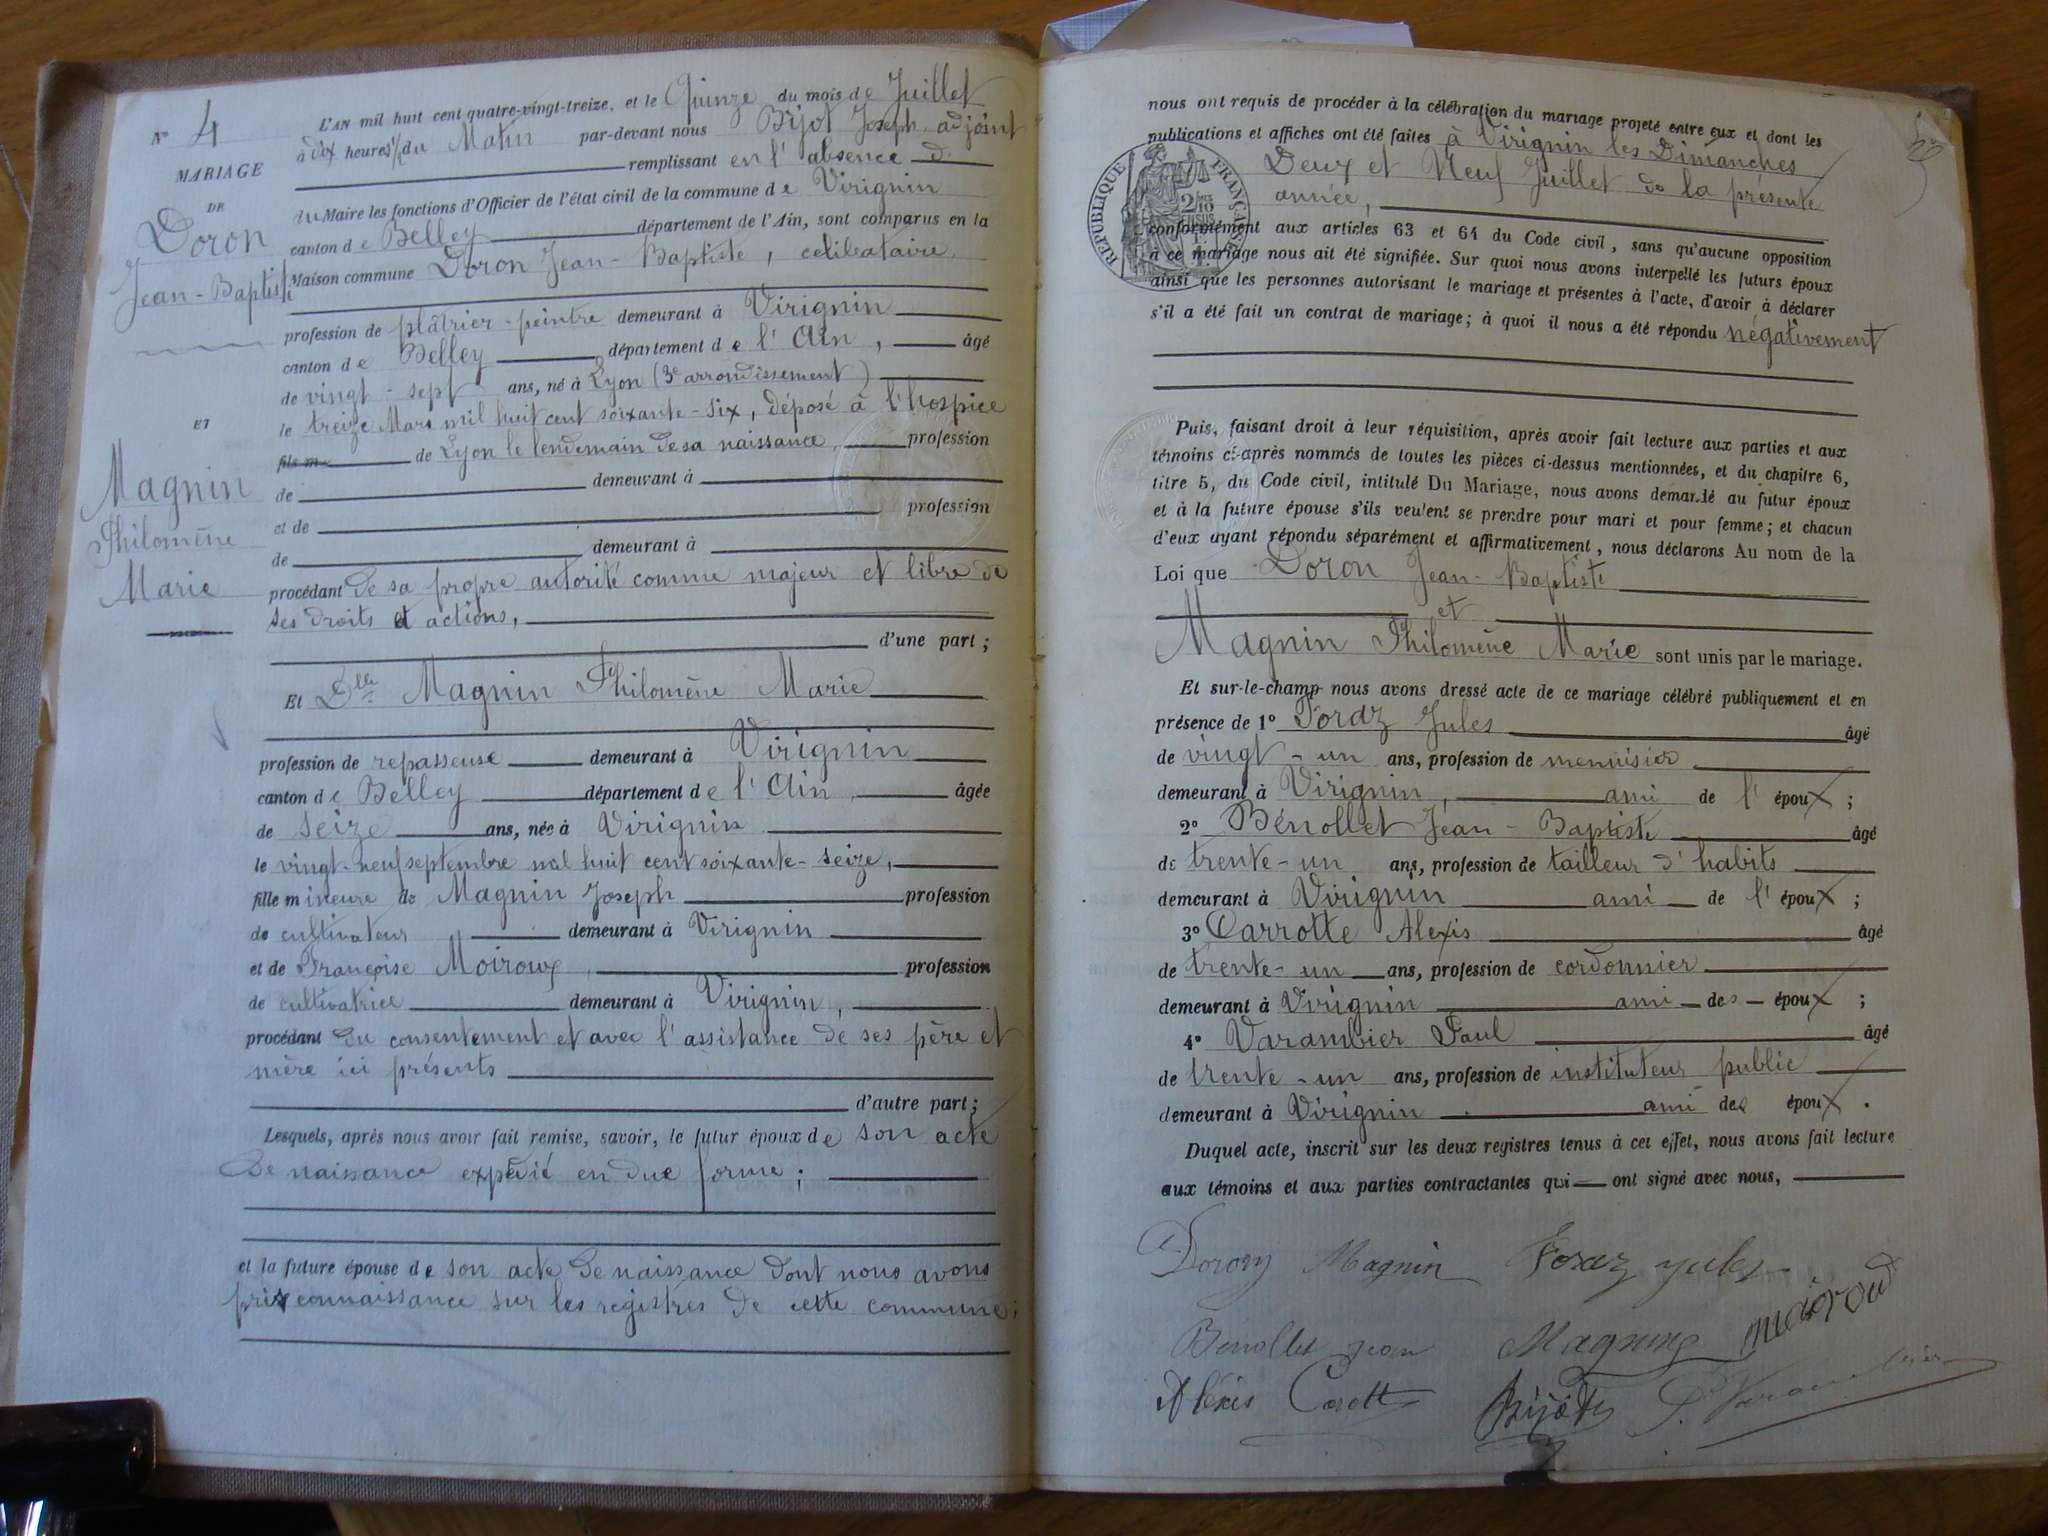 N° 4
MARIAGE
DE
Doron
Jean-Baptiste
ET
Magnin
Philomène
Marie
L'AN mil huit cent quatre-vingt-treize, et le Quinze du mois de Juillet
à dix heures 1/2 du Matin par-devant nous Bijot Joseph adjoint
remplissant en l'absence
du Maire les fonctions d'Officier de l'état civil de la commune de Virignin
canton de Belley département de l'Ain, sont comparus en la
Maison commune Doron Jean-Baptiste, célibataire,
profession de plâtrier-peintre demeurant à Virignin
canton de Belley département de l'Ain, âgé
de vingt-sept ans, né à Lyon (3e arrondissement)
le treize Mars mil huit cent soixante-six, déposé à l'hospice
fils m de Lyon le lendemain de sa naissance, profession
de demeurant à
et de profession
de demeurant à
procédant de sa propre autorité comme majeur et libre de
ses droits et actions,
d'une part ;
Et Dlle Magnin Philomène Marie
profession de repasseuse demeurant à Virignin
canton de Belley département de l'Ain, âgée
de seize ans, née à Virignin
le vingt-neuf septembre mil huit cent soixante-seize,
fille mineure de Magnin Joseph profession
de cultivateur demeurant à Virignin
et de Françoise Moiroux, profession
de cultivatrice demeurant à Virignin,
procédant du consentement et avec l'assistance de ses père et
mère ici présents
d'autre part ;
Lesquels, après nous avoir fait remise, savoir, le futur époux de son acte
de naissance expédié en due forme ;
et la future épouse de son acte de naissance dont nous avons
pris connaissance sur les registres de cette commune ;
nous ont requis de procéder à la célébration du mariage projeté entre eux et dont les
publications et affiches ont été faites à Virignin les Dimanches
Deux et Neuf Juillet de la présente
année,
RÉPUBLIQUE FRANÇAISE
conformément aux articles 63 et 64 du Code civil, sans qu'aucune opposition
à ce mariage nous ait été signifiée. Sur quoi nous avons interpellé les futurs époux
ainsi que les personnes autorisant le mariage et présentes à l'acte, d'avoir à déclarer
s'il a été fait un contrat de mariage ; à quoi il nous a été répondu négativement
Puis, faisant droit à leur réquisition, après avoir fait lecture aux parties et aux
témoins ci-après nommés de toutes les pièces ci-dessus mentionnées, et du chapitre 6,
titre 5, du Code civil, intitulé Du Mariage, nous avons demandé au futur époux
et à la future épouse s'ils veulent se prendre pour mari et pour femme ; et chacun
d'eux ayant répondu séparément et affirmativement, nous déclarons Au nom de la
Loi que Doron Jean-Baptiste
et
Magnin Philomène Marie sont unis par le mariage.
Et sur-le-champ nous avons dressé acte de ce mariage célébré publiquement et en
présence de 1° Foraz Jules âgé
de vingt-un ans, profession de menuisier
demeurant à Virignin, ami de l'époux ;
2° Bénollet Jean-Baptiste âgé
de trente-un ans, profession de tailleur d'habits
demeurant à Virignin ami de l'époux ;
3° Carrotte Alexis âgé
de trente-un ans, profession de cordonnier
demeurant à Virignin ami des époux ;
4° Varambier Paul âgé
de trente-un ans, profession de instituteur public
demeurant à Virignin ami des époux.
Duquel acte, inscrit sur les deux registres tenus à cet effet, nous avons fait lecture
aux témoins et aux parties contractantes qui ont signé avec nous,
Doron Magnin Foraz jules
Benollet jean Magnin moiroud
Alexis Carott Bijot P. Varambier